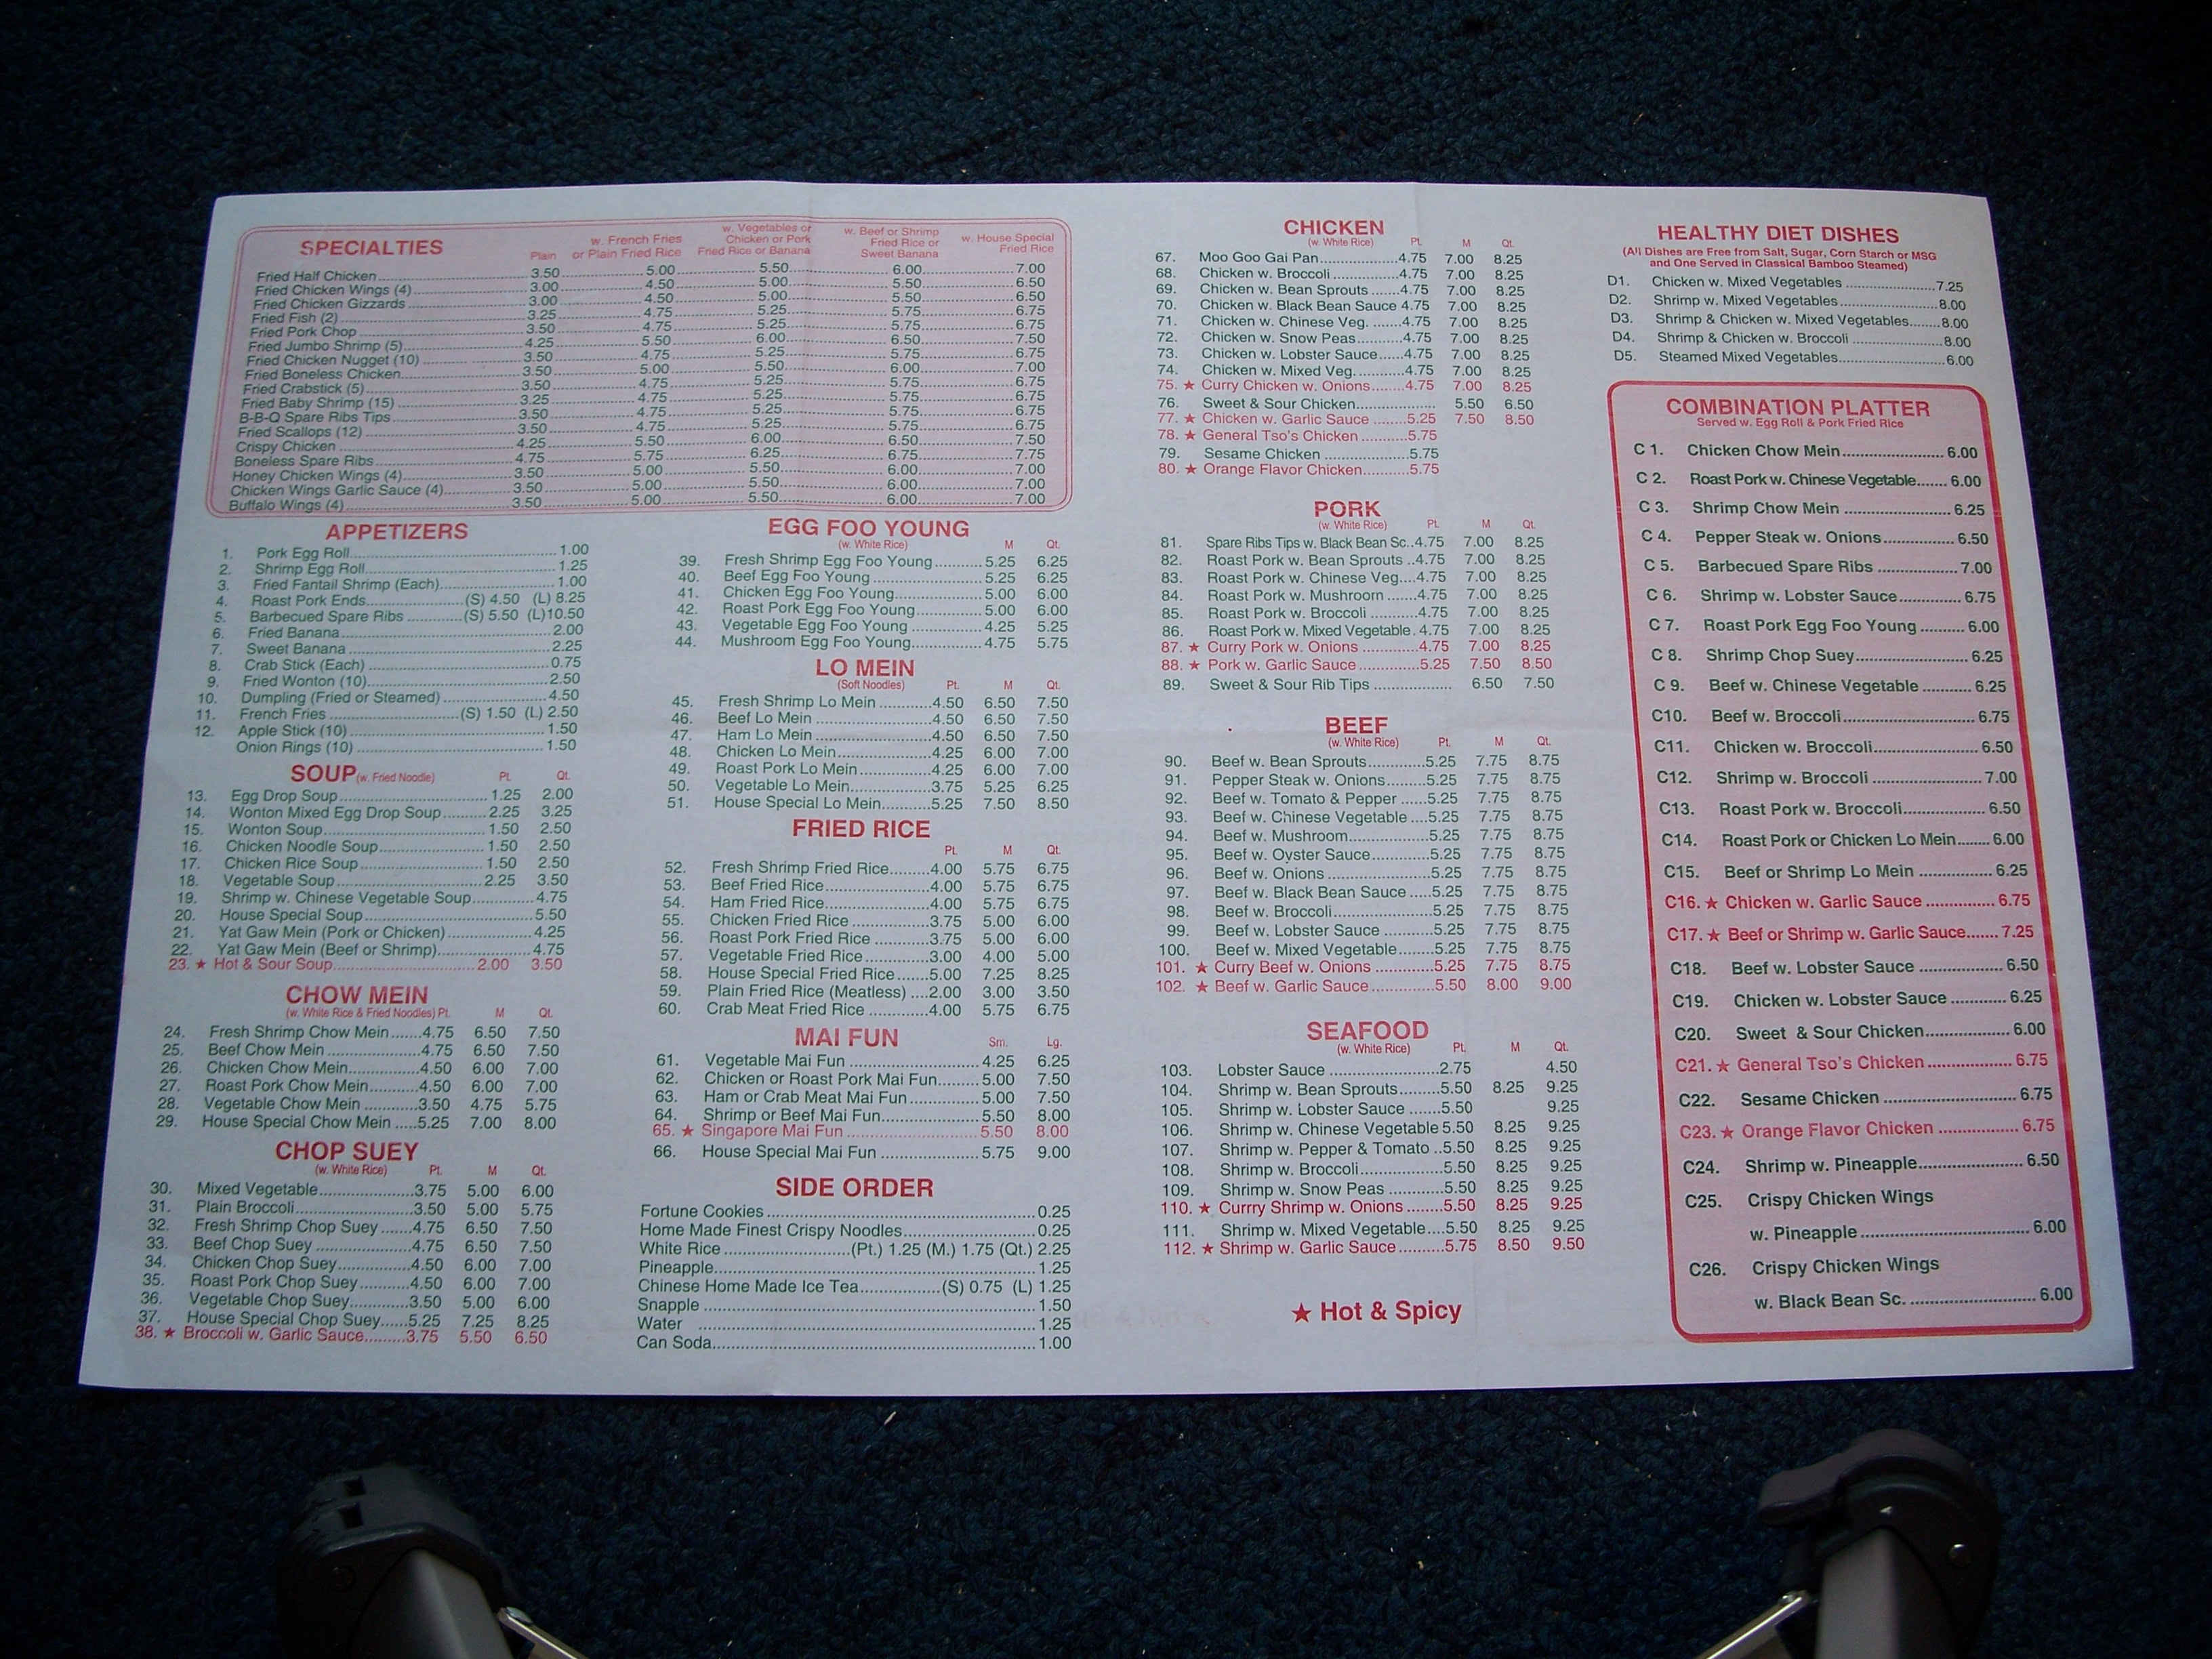 SPECIALTIES
Plain
w. French Fries
or Plain Fried Rice
w. Vegetables or
Chicken or Pork
Fried Rice or Banana
w. Beef or Shrimp
Fried Rice or
Sweet Banana
w. House Special
Fried Rice
Fried Half Chicken 3.50 5.00 5.50 6.00 7.00
Fried Chicken Wings (4) 3.00 4.50 5.00 5.50 6.50
Fried Chicken Gizzards 3.00 4.50 5.00 5.50 6.50
Fried Fish (2) 3.25 4.75 5.25 5.75 6.75
Fried Pork Chop 3.50 4.75 5.25 5.75 6.75
Fried Jumbo Shrimp (5) 4.25 5.50 6.00 6.50 7.50
Fried Chicken Nugget (10) 3.50 4.75 5.25 5.75 6.75
Fried Boneless Chicken 3.50 5.00 5.50 6.00 7.00
Fried Crabstick (5) 3.50 4.75 5.25 5.75 6.75
Fried Baby Shrimp (15) 3.25 4.75 5.25 5.75 6.75
B-B-Q Spare Ribs Tips 3.50 4.75 5.25 5.75 6.75
Fried Scallops (12) 3.50 4.75 5.25 5.75 6.75
Crispy Chicken 4.25 5.50 6.00 6.50 7.50
Boneless Spare Ribs 4.75 5.75 6.25 6.75 7.75
Honey Chicken Wings (4) 3.50 5.00 5.50 6.00 7.00
Chicken Wings Garlic Sauce (4) 3.50 5.00 5.50 6.00 7.00
Buffalo Wings (4) 3.50 5.00 5.50 6.00 7.00
APPETIZERS
1. Pork Egg Roll 1.00
2. Shrimp Egg Roll 1.25
3. Fried Fantail Shrimp (Each) 1.00
4. Roast Pork Ends (S) 4.50 (L) 8.25
5. Barbecued Spare Ribs (S) 5.50 (L)10.50
6. Fried Banana 2.00
7. Sweet Banana 2.25
8. Crab Stick (Each) 0.75
9. Fried Wonton (10) 2.50
10. Dumpling (Fried or Steamed) 4.50
11. French Fries (S) 1.50 (L) 2.50
12. Apple Stick (10) 1.50
Onion Rings (10) 1.50
SOUP (w. Fried Noodle) Pt. Qt.
13. Egg Drop Soup 1.25 2.00
14. Wonton Mixed Egg Drop Soup 2.25 3.25
15. Wonton Soup 1.50 2.50
16. Chicken Noodle Soup 1.50 2.50
17. Chicken Rice Soup 1.50 2.50
18. Vegetable Soup 2.25 3.50
19. Shrimp w. Chinese Vegetable Soup 4.75
20. House Special Soup 5.50
21. Yat Gaw Mein (Pork or Chicken) 4.25
22. Yat Gaw Mein (Beef or Shrimp) 4.75
23. ★ Hot & Sour Soup 2.00 3.50
CHOW MEIN
(w. White Rice & Fried Noodles) Pt. M Qt.
24. Fresh Shrimp Chow Mein 4.75 6.50 7.50
25. Beef Chow Mein 4.75 6.50 7.50
26. Chicken Chow Mein 4.50 6.00 7.00
27. Roast Pork Chow Mein 4.50 6.00 7.00
28. Vegetable Chow Mein 3.50 4.75 5.75
29. House Special Chow Mein 5.25 7.00 8.00
CHOP SUEY
(w. White Rice) Pt. M Qt.
30. Mixed Vegetable 3.75 5.00 6.00
31. Plain Broccoli 3.50 5.00 5.75
32. Fresh Shrimp Chop Suey 4.75 6.50 7.50
33. Beef Chop Suey 4.75 6.50 7.50
34. Chicken Chop Suey 4.50 6.00 7.00
35. Roast Pork Chop Suey 4.50 6.00 7.00
36. Vegetable Chop Suey 3.50 5.00 6.00
37. House Special Chop Suey 5.25 7.25 8.25
38. ★ Broccoli w. Garlic Sauce 3.75 5.50 6.50
EGG FOO YOUNG
(w. White Rice) M Qt.
39. Fresh Shrimp Egg Foo Young 5.25 6.25
40. Beef Egg Foo Young 5.25 6.25
41. Chicken Egg Foo Young 5.00 6.00
42. Roast Pork Egg Foo Young 5.00 6.00
43. Vegetable Egg Foo Young 4.25 5.25
44. Mushroom Egg Foo Young 4.75 5.75
LO MEIN
(Soft Noodles) Pt. M Qt.
45. Fresh Shrimp Lo Mein 4.50 6.50 7.50
46. Beef Lo Mein 4.50 6.50 7.50
47. Ham Lo Mein 4.50 6.50 7.50
48. Chicken Lo Mein 4.25 6.00 7.00
49. Roast Pork Lo Mein 4.25 6.00 7.00
50. Vegetable Lo Mein 3.75 5.25 6.25
51. House Special Lo Mein 5.25 7.50 8.50
FRIED RICE
Pt. M Qt.
52. Fresh Shrimp Fried Rice 4.00 5.75 6.75
53. Beef Fried Rice 4.00 5.75 6.75
54. Ham Fried Rice 4.00 5.75 6.75
55. Chicken Fried Rice 3.75 5.00 6.00
56. Roast Pork Fried Rice 3.75 5.00 6.00
57. Vegetable Fried Rice 3.00 4.00 5.00
58. House Special Fried Rice 5.00 7.25 8.25
59. Plain Fried Rice (Meatless) 2.00 3.00 3.50
60. Crab Meat Fried Rice 4.00 5.75 6.75
MAI FUN Sm. Lg.
61. Vegetable Mai Fun 4.25 6.25
62. Chicken or Roast Pork Mai Fun 5.00 7.50
63. Ham or Crab Meat Mai Fun 5.00 7.50
64. Shrimp or Beef Mai Fun 5.50 8.00
65. ★ Singapore Mai Fun 5.50 8.00
66. House Special Mai Fun 5.75 9.00
SIDE ORDER
Fortune Cookies 0.25
Home Made Finest Crispy Noodles 0.25
White Rice (Pt.) 1.25 (M.) 1.75 (Qt.) 2.25
Pineapple 1.25
Chinese Home Made Ice Tea (S) 0.75 (L) 1.25
Snapple 1.50
Water 1.25
Can Soda 1.00
CHICKEN
(w. White Rice) Pt. M Qt.
67. Moo Goo Gai Pan 4.75 7.00 8.25
68. Chicken w. Broccoli 4.75 7.00 8.25
69. Chicken w. Bean Sprouts 4.75 7.00 8.25
70. Chicken w. Black Bean Sauce 4.75 7.00 8.25
71. Chicken w. Chinese Veg. 4.75 7.00 8.25
72. Chicken w. Snow Peas 4.75 7.00 8.25
73. Chicken w. Lobster Sauce 4.75 7.00 8.25
74. Chicken w. Mixed Veg. 4.75 7.00 8.25
75. ★ Curry Chicken w. Onions 4.75 7.00 8.25
76. Sweet & Sour Chicken 5.50 6.50
77. ★ Chicken w. Garlic Sauce 5.25 7.50 8.50
78. ★ General Tso's Chicken 5.75
79. Sesame Chicken 5.75
80. ★ Orange Flavor Chicken 5.75
PORK
(w. White Rice) Pt. M Qt.
81. Spare Ribs Tips w. Black Bean Sc. 4.75 7.00 8.25
82. Roast Pork w. Bean Sprouts 4.75 7.00 8.25
83. Roast Pork w. Chinese Veg. 4.75 7.00 8.25
84. Roast Pork w. Mushroom 4.75 7.00 8.25
85. Roast Pork w. Broccoli 4.75 7.00 8.25
86. Roast Pork w. Mixed Vegetable 4.75 7.00 8.25
87. ★ Curry Pork w. Onions 4.75 7.00 8.25
88. ★ Pork w. Garlic Sauce 5.25 7.50 8.50
89. Sweet & Sour Rib Tips 6.50 7.50
BEEF
(w. White Rice) Pt. M Qt.
90. Beef w. Bean Sprouts 5.25 7.75 8.75
91. Pepper Steak w. Onions 5.25 7.75 8.75
92. Beef w. Tomato & Pepper 5.25 7.75 8.75
93. Beef w. Chinese Vegetable 5.25 7.75 8.75
94. Beef w. Mushroom 5.25 7.75 8.75
95. Beef w. Oyster Sauce 5.25 7.75 8.75
96. Beef w. Onions 5.25 7.75 8.75
97. Beef w. Black Bean Sauce 5.25 7.75 8.75
98. Beef w. Broccoli 5.25 7.75 8.75
99. Beef w. Lobster Sauce 5.25 7.75 8.75
100. Beef w. Mixed Vegetable 5.25 7.75 8.75
101. ★ Curry Beef w. Onions 5.25 7.75 8.75
102. ★ Beef w. Garlic Sauce 5.50 8.00 9.00
SEAFOOD
(w. White Rice) Pt. M Qt.
103. Lobster Sauce 2.75 4.50
104. Shrimp w. Bean Sprouts 5.50 8.25 9.25
105. Shrimp w. Lobster Sauce 5.50 9.25
106. Shrimp w. Chinese Vegetable 5.50 8.25 9.25
107. Shrimp w. Pepper & Tomato 5.50 8.25 9.25
108. Shrimp w. Broccoli 5.50 8.25 9.25
109. Shrimp w. Snow Peas 5.50 8.25 9.25
110. ★ Currry Shrimp w. Onions 5.50 8.25 9.25
111. Shrimp w. Mixed Vegetable 5.50 8.25 9.25
112. ★ Shrimp w. Garlic Sauce 5.75 8.50 9.50
★ Hot & Spicy
HEALTHY DIET DISHES
(All Dishes are Free from Salt, Sugar, Corn Starch or MSG
and One Served in Classical Bamboo Steamed)
D1. Chicken w. Mixed Vegetables 7.25
D2. Shrimp w. Mixed Vegetables 8.00
D3. Shrimp & Chicken w. Mixed Vegetables 8.00
D4. Shrimp & Chicken w. Broccoli 8.00
D5. Steamed Mixed Vegetables 6.00
COMBINATION PLATTER
Served w. Egg Roll & Pork Fried Rice
C 1. Chicken Chow Mein 6.00
C 2. Roast Pork w. Chinese Vegetable 6.00
C 3. Shrimp Chow Mein 6.25
C 4. Pepper Steak w. Onions 6.50
C 5. Barbecued Spare Ribs 7.00
C 6. Shrimp w. Lobster Sauce 6.75
C 7. Roast Pork Egg Foo Young 6.00
C 8. Shrimp Chop Suey 6.25
C 9. Beef w. Chinese Vegetable 6.25
C10. Beef w. Broccoli 6.75
C11. Chicken w. Broccoli 6.50
C12. Shrimp w. Broccoli 7.00
C13. Roast Pork w. Broccoli 6.50
C14. Roast Pork or Chicken Lo Mein 6.00
C15. Beef or Shrimp Lo Mein 6.25
C16. ★ Chicken w. Garlic Sauce 6.75
C17. ★ Beef or Shrimp w. Garlic Sauce 7.25
C18. Beef w. Lobster Sauce 6.50
C19. Chicken w. Lobster Sauce 6.25
C20. Sweet & Sour Chicken 6.00
C21. ★ General Tso's Chicken 6.75
C22. Sesame Chicken 6.75
C23. ★ Orange Flavor Chicken 6.75
C24. Shrimp w. Pineapple 6.50
C25. Crispy Chicken Wings
w. Pineapple 6.00
C26. Crispy Chicken Wings
w. Black Bean Sc. 6.00